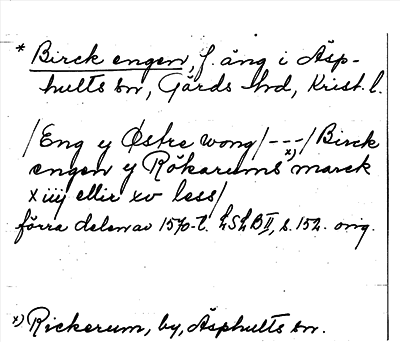 * Birck engen, f. äng i Äsp-
hults sn, Gärds hd, Krist. l.
/Eng y Østre wong/ - - - /Birck
engen y Rökarums x) marck
x iiij ellir xv less/
förra delen av 1570-t. LSLB II, s. 152. orig.
x) Rickerum, by, Äsphults sn.